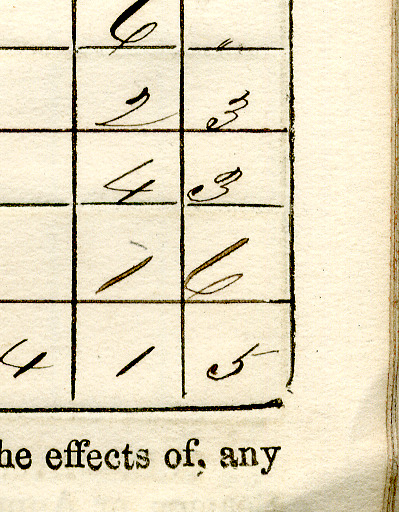 6 "
2 3
4 3
1 6
4 1 5
he effects of, any